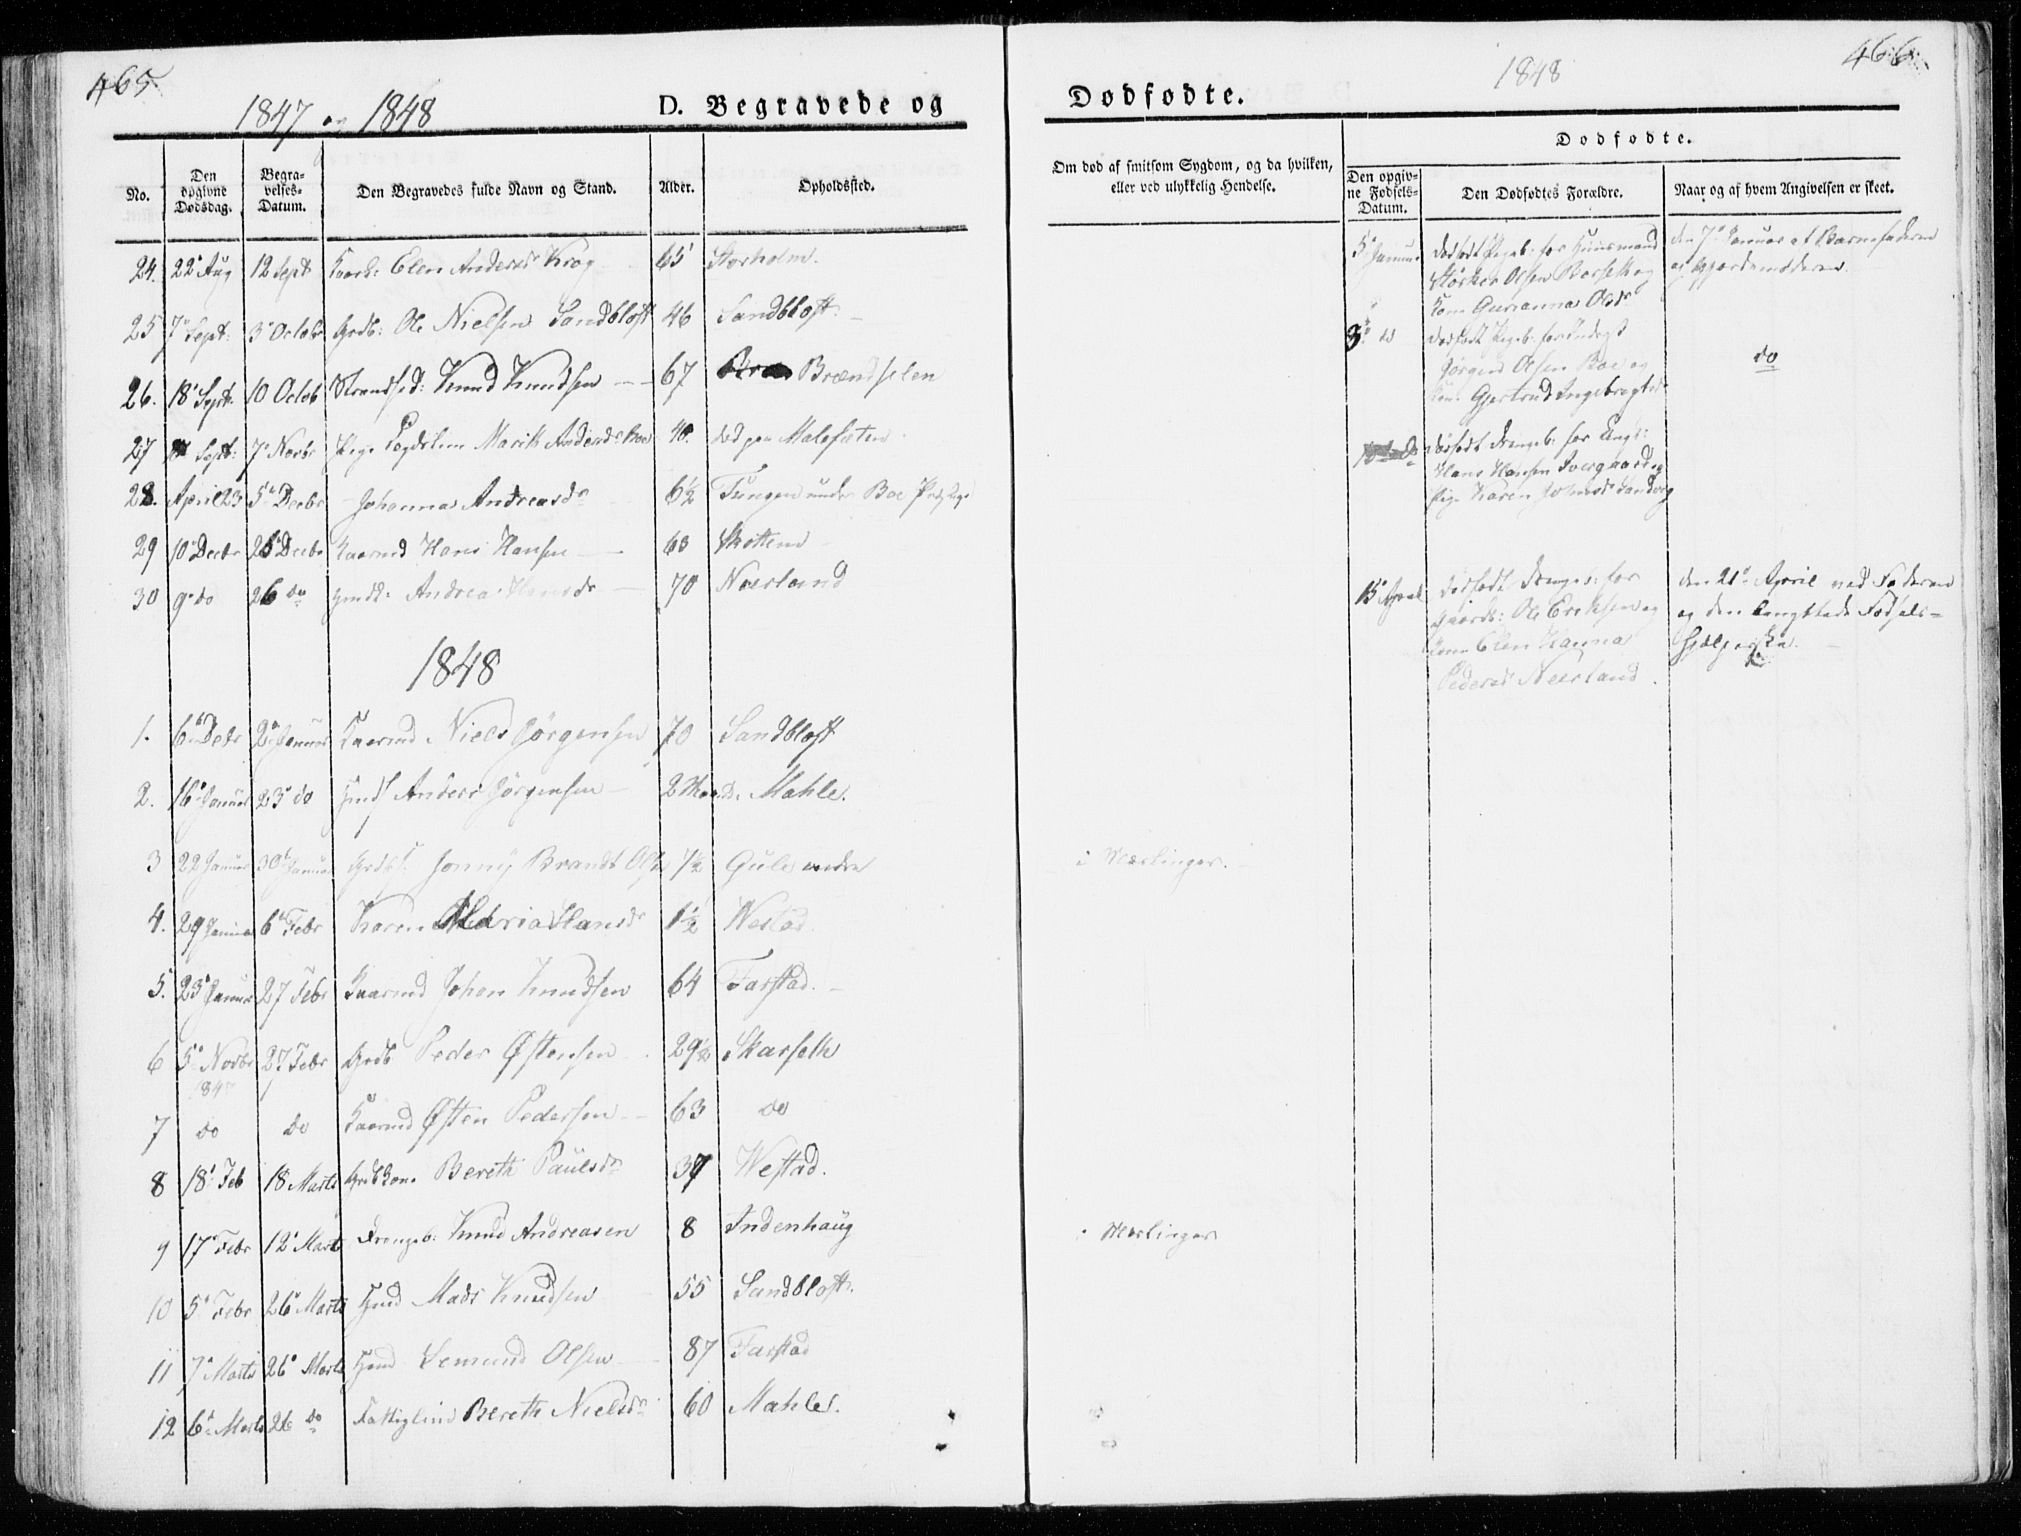 465.
1847 og 1848
D. Begravede og
No.
Den opgivne Dødsdag.
Begravelses-Datum.
Den Begravedes fulde Navn og Stand.
Alder.
Opholdssted.
24. 22 Aug 12 Sept Elen Andersdr Krog 65 Storholm.
25 7 Sept: 3 Octobr Grdb: Ole Nielsen Sandblost 46 Sandblost
26. 18 Sept. 10 Octob Strandsed: Knud Knudsen 67 Brændselen
27 Sept: 7 Novbr Pige Marith Andersdr 40. død paa Malefeten
28. April 23 5 Decbr Johanna Andreasdr 6½ Tungen under Boe
29 10 Decbr 26 Decbr Kaarmd Hans Hansen 63
30 9 do 26 do Andrea Hansdr 70 Neerland
1848
1. 6 Debr 2 Januar Kaarmd Niels Jörgensen 70 Sandblost
2. 16 Januar 23 do Anders Jörgensen 2 Maan. Mahle.
3 22 Januar 30 Januar Jonny Brandt Olsen 7½ Gule nedre
4. 29 Januar 6 Febr Karen Maria Hansdr 1½ Nestad
5. 23 Januar 27 Febr Kaarmd Johan Knudsen 64 Farstad.
6 5 Novbr 1847 27 Febr Grdb Peder Østensen 29½ Skarseth
7 do do Kaarmd Østen Pedersen 63 do
8 18 Feb 18 Marts Grdbkone Bereth Paulsdr 37 Westad.
9 17 Febr 12 Marts Drengeb: Knud Andreasen 8 Indenhaug
10 5 Febr 26 Marts Hmd Mads Knudsen 55 Sandblost.
11 7 Marts 26 Marts Hmd Semund Olsen 87 Farstad
12 6 Marts 26 do Fattiglem Bereth Nielsdr 60 Mahle.
1848
466.
Dødfødte.
Om død af smitsom Sygdom, og da hvilken,
eller ved ulykkelig Hendelse.
Dødfødte.
Den opgivne Fødsels-Datum.
Den Dødfødtes Forældre.
Naar og af hvem Angivelsen er skeet.
5 Januar
dødfødt Pigeb: for Huusmand
Störker Olsen og
Kone Gurianna Olsdr
den 7 Januar af Barnefaderen
og Gjordemoderen.
8 do
dødfødt Pigeb. for
Jörgen Olsen Boe og
Kone Gjertrud Ingebregtsdr
do
dødfødt Drengeb: for Ungk:
Hans Hansen og
Pige Karen
15 April
dødfødt Drengeb: for
Gaardb: Ole Eriksen og
Kone Elen Hanna
Pedersdr Neerland.
den 21 April ved Faderen
og den Fødsels-
hjelperske.
i Mæslinger.
i Mæslinger